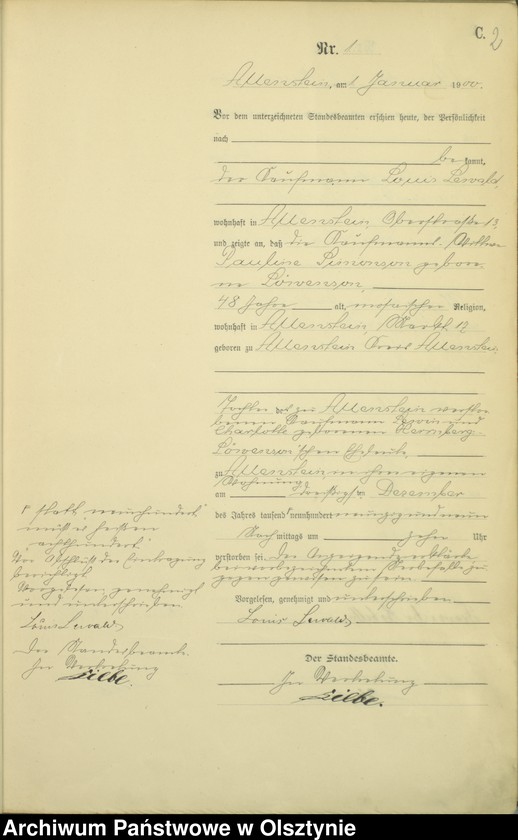 C.
2
Nr. 1
Allenstein, am 1 Januar 1900.
Vor dem unterzeichneten Standesbeamten erschien heute, der Persönlichkeit
nach
bekannt,
der Kaufmann Louis Lewald
wohnhaft in Allenstein, Oberstraße 13,
und zeigte an, daß die Kaufmanns-Wittwe
Pauline Simonson gebore-
ne Löwenson,
48 Jahre alt, mosaischer Religion,
wohnhaft in Allenstein, Markt 12
geboren zu Allenstein Kreis Allenstein,
Tochter der zu Allenstein verstor-
benen Kaufmann und
Charlotte geborenen
Löwenson'schen Eheleute,
zu Allenstein in ihrer eigenen
Wohnung
am Dezember
des Jahres tausend neunhundert neunzig und neun
Nachmittags um zehn Uhr
verstorben sei. Der Anzeigende erklärte
bei vorbezeichnetem Sterbefalle zu-
gegen gewesen zu sein.
Vorgelesen, genehmigt und unterschrieben
Louis Lewald
Der Standesbeamte.
In Vertretung
Zilbe.
statt neunhundert
muß es heißen
"achthundert"
Vor Abschluß der Eintragung
berichtigt.
Vorgelesen, genehmigt
und unterschrieben
Louis Lewald
Der Standesbeamte.
In Vertretung
Zilbe.
Archiwum Państwowe w Olsztynie